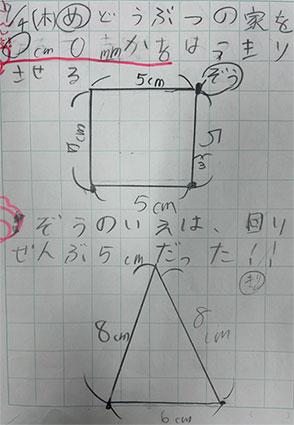 /4(木)めどうぶつの家を
cmかmmかをはっきり
させる
5cm
ぞう
5cm
5
5cm
ぞうのいえは、回り
ぜんぶ5cmだった!!
きりん
8cm
8cm
6cm